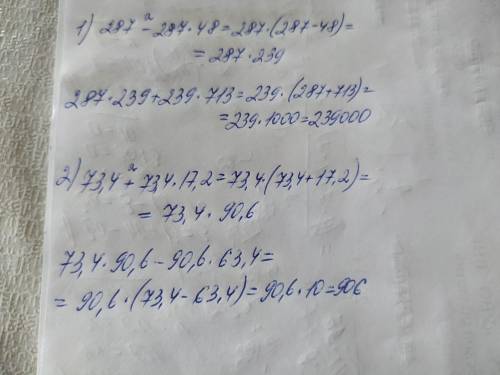 1) 287² - 287·48 = 287·(287-48) =
= 287·239
287·239 + 239·713 = 239·(287+713) =
= 239·1000 = 239000
2) 73,4² + 73,4·17,2 = 73,4·(73,4+17,2) =
= 73,4·90,6
73,4·90,6 - 90,6·63,4 =
= 90,6·(73,4-63,4) = 90,6·10 = 906